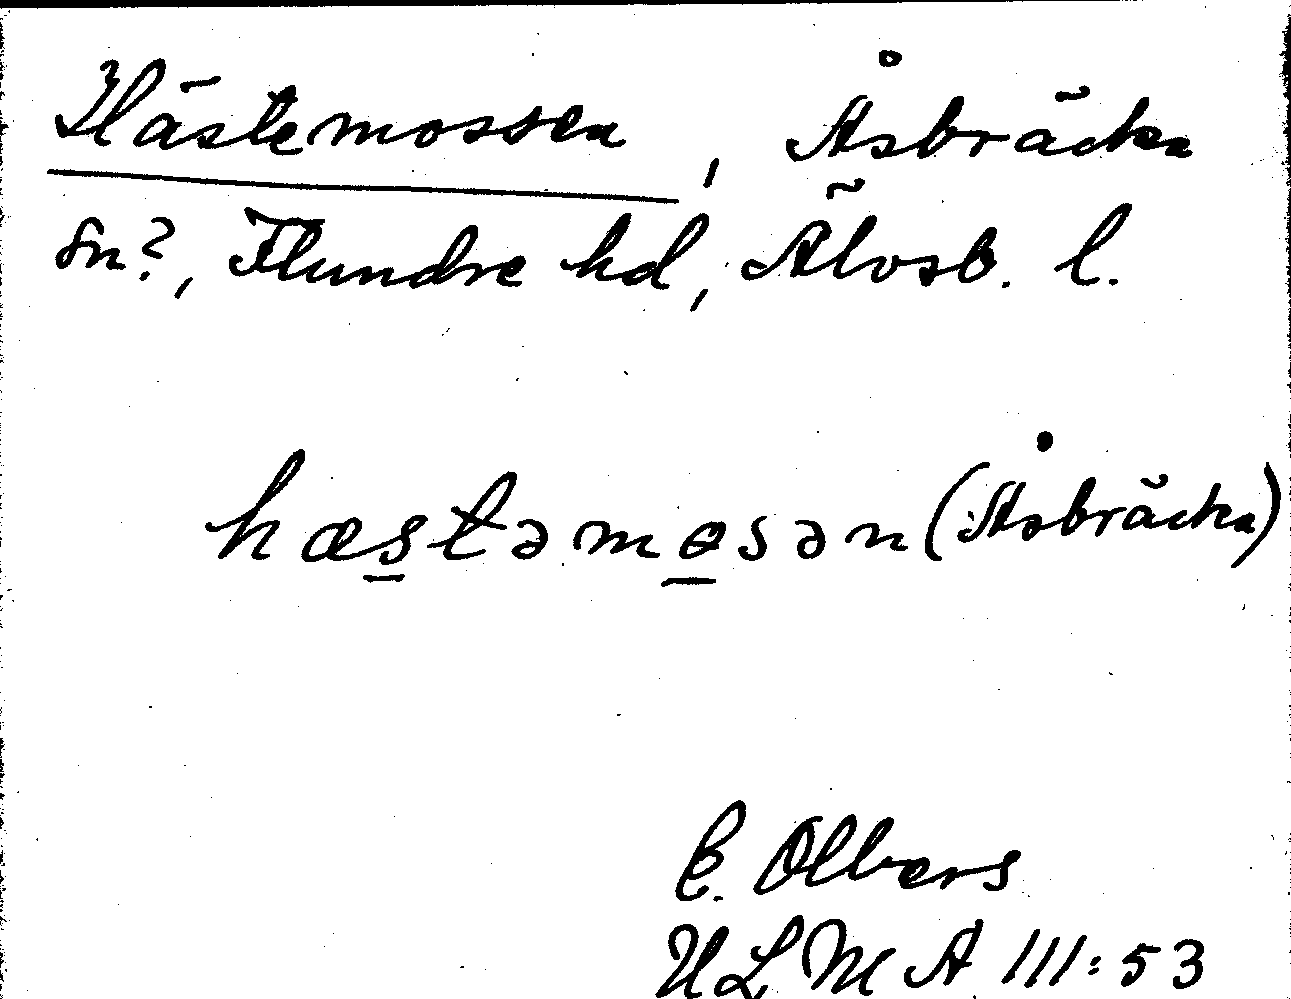 Hästemossen, Åsbräcka
sn?, Flundre hd, Älvsb. l.
hæstəmɵsən (Åsbräcka)
E. Olbers
ULMA III:53